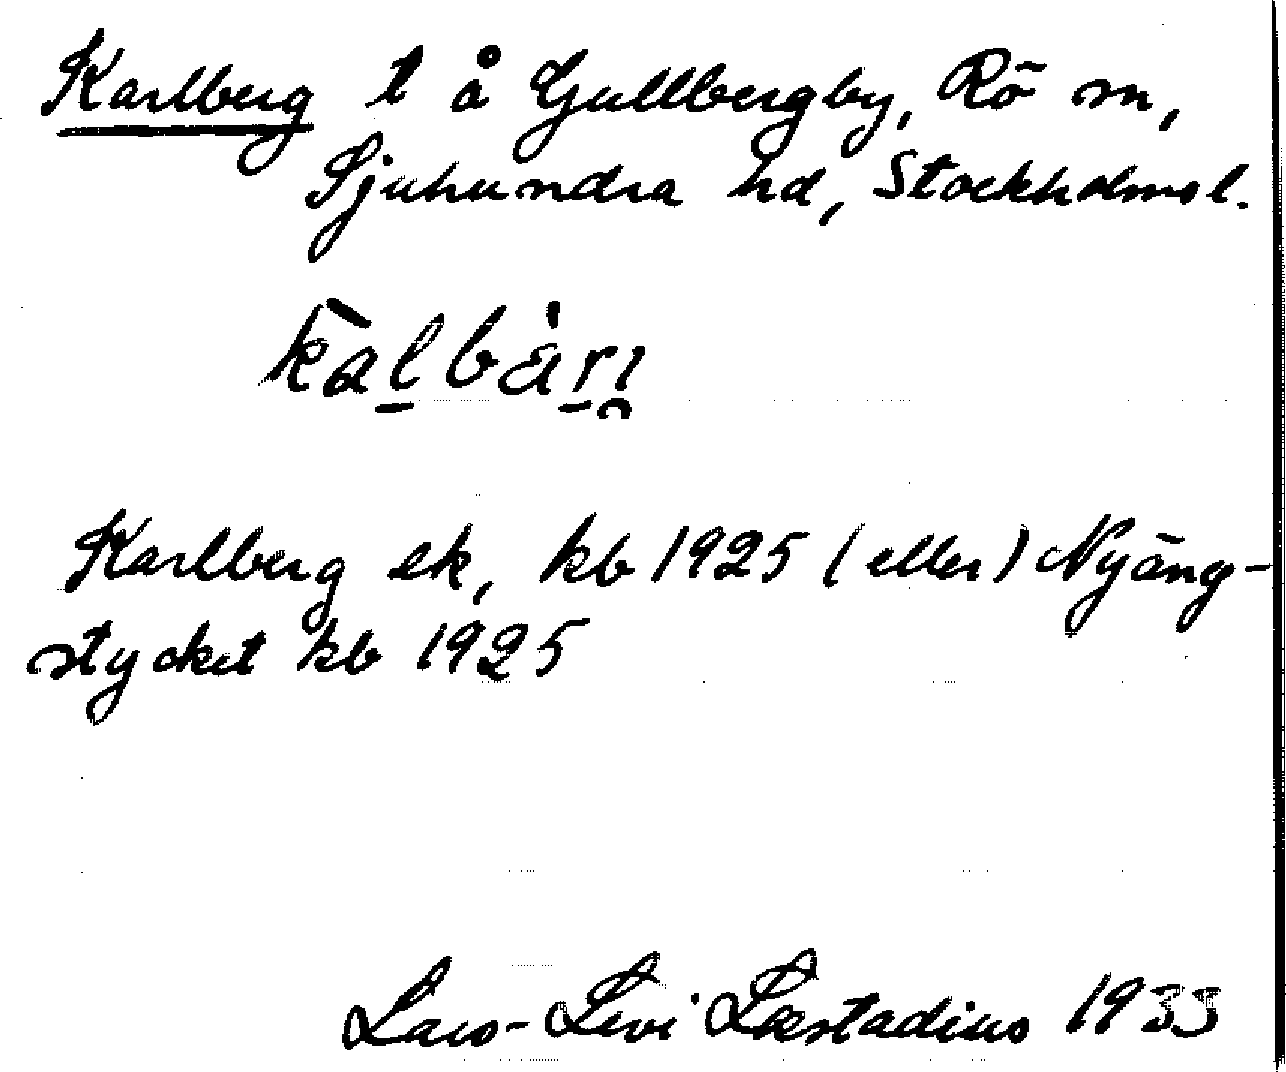 Karlberg t å Gullbergby, Rö sn,
Sjuhundra hd, Stockholms l.
Karlberg ek, kb 1925 (eller) Nyäng-
stycket kb 1925
Lars-Levi Læstadius 1933